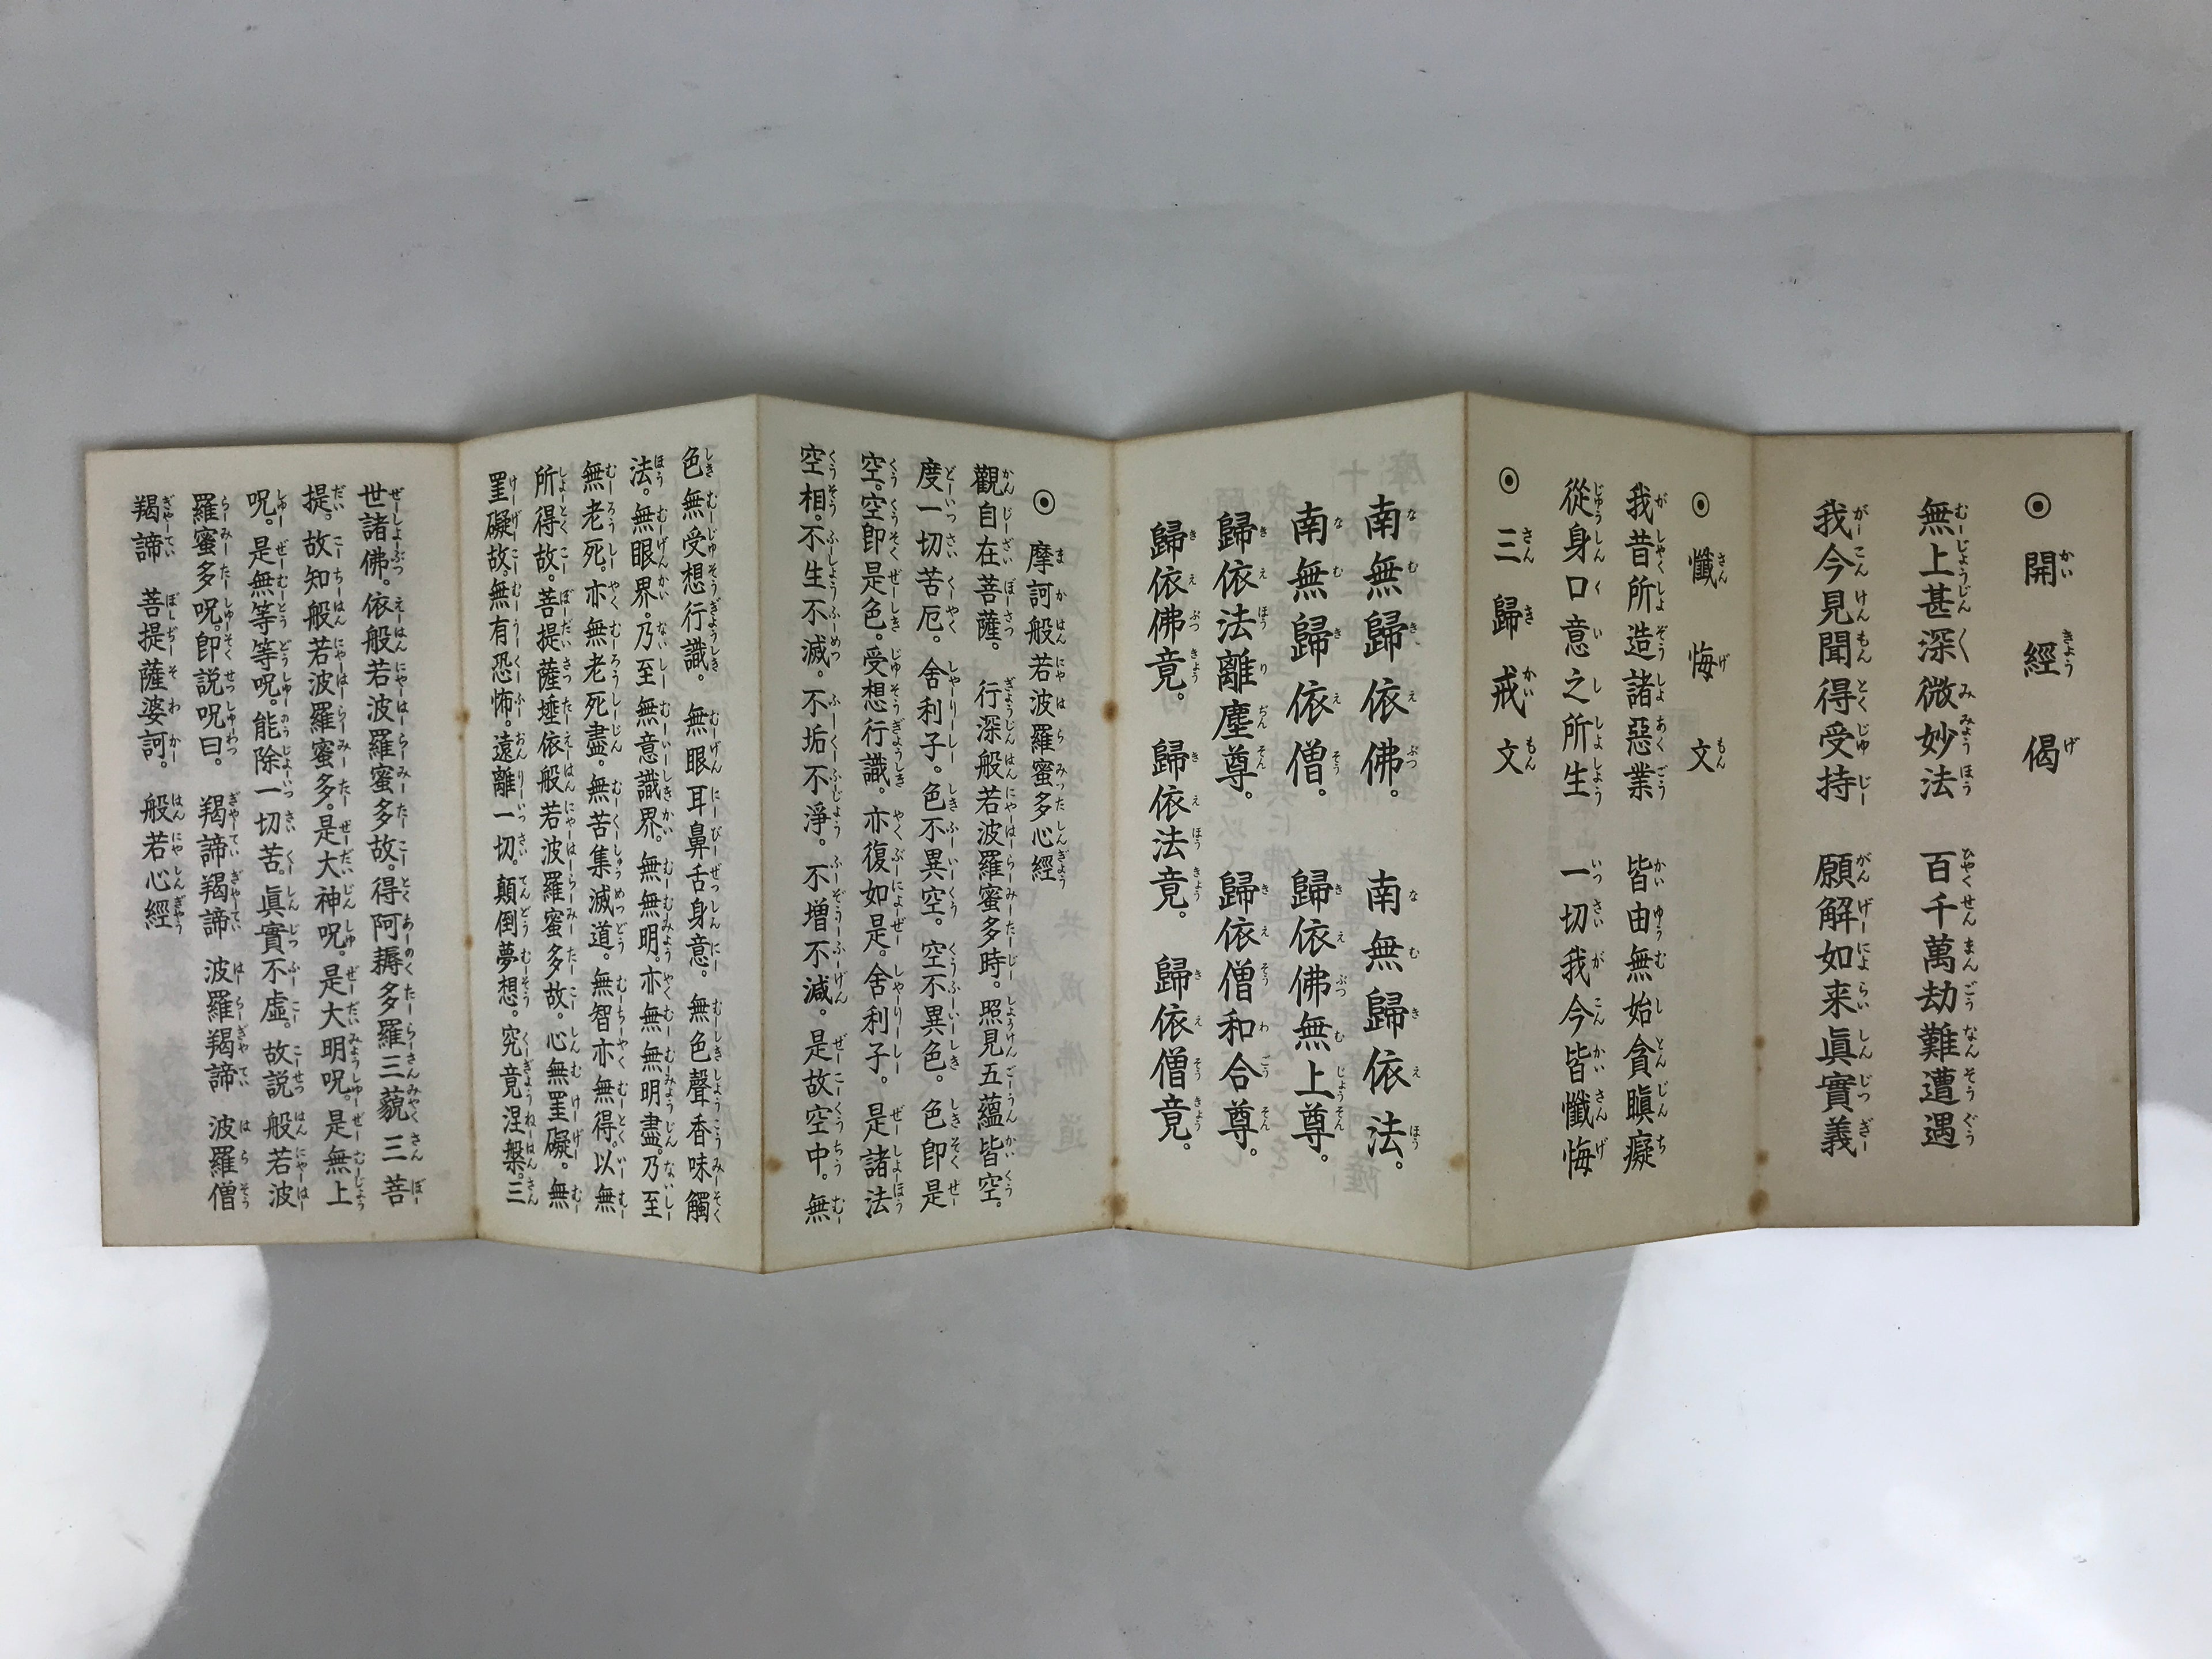 ◉開經偈
無上甚深微妙法 百千萬劫難遭遇
我今見聞得受持 願解如来眞實義
◉懺悔文
我昔所造諸惡業 皆由無始貪瞋癡
從身口意之所生 一切我今皆懺悔
◉三歸戒文
南無歸依佛。 南無歸依法。
南無歸依僧。 歸依佛無上尊。
歸依法離塵尊。 歸依僧和合尊。
歸依佛竟。 歸依法竟。 歸依僧竟。
◉摩訶般若波羅蜜多心經
觀自在菩薩。行深般若波羅蜜多時。照見五蘊皆空。
度一切苦厄。舍利子。色不異空。空不異色。色即是
空。空即是色。受想行識。亦復如是。舍利子。是諸法
空相。不生不滅。不垢不淨。不增不減。是故空中。無
色無受想行識。無眼耳鼻舌身意。無色聲香味觸
法。無眼界。乃至無意識界。無無明。亦無無明盡。乃至
無老死。亦無老死盡。無苦集滅道。無智亦無得。以無
所得故。菩提薩埵依般若波羅蜜多故。心無罣礙。無
罣礙故。無有恐怖。遠離一切。顛倒夢想。究竟涅槃。三
世諸佛。依般若波羅蜜多故。得阿耨多羅三藐三菩
提。故知般若波羅蜜多。是大神呪。是大明呪。是無上
呪。是無等等呪。能除一切苦。眞實不虛。故説般若波
羅蜜多呪。即説呪曰。 羯諦羯諦 波羅羯諦 波羅僧
羯諦 菩提薩婆訶。 般若心經